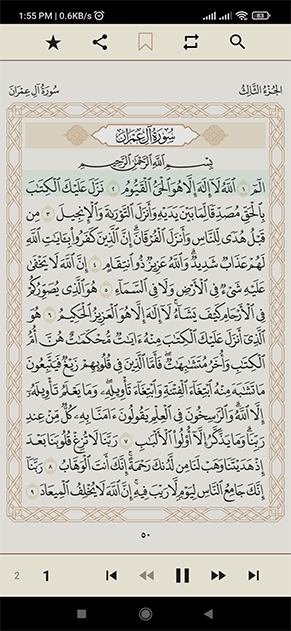 1:55 PM | 0.6KB/s
83
سُورَةُ آلِ عِمْرَانَ
الجُزءُ الثَّالِثُ
سُورَةُ آلِ عِمْرَانَ
بِسْمِ اللَّهِ الرَّحْمَٰنِ الرَّحِيمِ
الٓمٓ ١ ٱللَّهُ لَآ إِلَٰهَ إِلَّا هُوَ ٱلْحَىُّ ٱلْقَيُّومُ ٢ نَزَّلَ عَلَيْكَ ٱلْكِتَٰبَ
بِٱلْحَقِّ مُصَدِّقًا لِّمَا بَيْنَ يَدَيْهِ وَأَنزَلَ ٱلتَّوْرَىٰةَ وَٱلْإِنجِيلَ ٣ مِن
قَبْلُ هُدًى لِّلنَّاسِ وَأَنزَلَ ٱلْفُرْقَانَ ۗ إِنَّ ٱلَّذِينَ كَفَرُوا۟ بِـَٔايَٰتِ ٱللَّهِ
لَهُمْ عَذَابٌ شَدِيدٌ ۗ وَٱللَّهُ عَزِيزٌ ذُو ٱنتِقَامٍ ٤ إِنَّ ٱللَّهَ لَا يَخْفَىٰ
عَلَيْهِ شَىْءٌ فِى ٱلْأَرْضِ وَلَا فِى ٱلسَّمَآءِ ٥ هُوَ ٱلَّذِى يُصَوِّرُكُمْ
فِى ٱلْأَرْحَامِ كَيْفَ يَشَآءُ ۚ لَآ إِلَٰهَ إِلَّا هُوَ ٱلْعَزِيزُ ٱلْحَكِيمُ ٦ هُوَ
ٱلَّذِىٓ أَنزَلَ عَلَيْكَ ٱلْكِتَٰبَ مِنْهُ ءَايَٰتٌ مُّحْكَمَٰتٌ هُنَّ أُمُّ
ٱلْكِتَٰبِ وَأُخَرُ مُتَشَٰبِهَٰتٌ ۖ فَأَمَّا ٱلَّذِينَ فِى قُلُوبِهِمْ زَيْغٌ فَيَتَّبِعُونَ
مَا تَشَٰبَهَ مِنْهُ ٱبْتِغَآءَ ٱلْفِتْنَةِ وَٱبْتِغَآءَ تَأْوِيلِهِۦ ۗ وَمَا يَعْلَمُ تَأْوِيلَهُۥٓ
إِلَّا ٱللَّهُ ۗ وَٱلرَّٰسِخُونَ فِى ٱلْعِلْمِ يَقُولُونَ ءَامَنَّا بِهِۦ كُلٌّ مِّنْ عِندِ
رَبِّنَا ۗ وَمَا يَذَّكَّرُ إِلَّآ أُو۟لُوا۟ ٱلْأَلْبَٰبِ ٧ رَبَّنَا لَا تُزِغْ قُلُوبَنَا بَعْدَ
إِذْ هَدَيْتَنَا وَهَبْ لَنَا مِن لَّدُنكَ رَحْمَةً ۚ إِنَّكَ أَنتَ ٱلْوَهَّابُ ٨ رَبَّنَآ
إِنَّكَ جَامِعُ ٱلنَّاسِ لِيَوْمٍ لَّا رَيْبَ فِيهِ ۚ إِنَّ ٱللَّهَ لَا يُخْلِفُ ٱلْمِيعَادَ ٩
٥٠
2 1